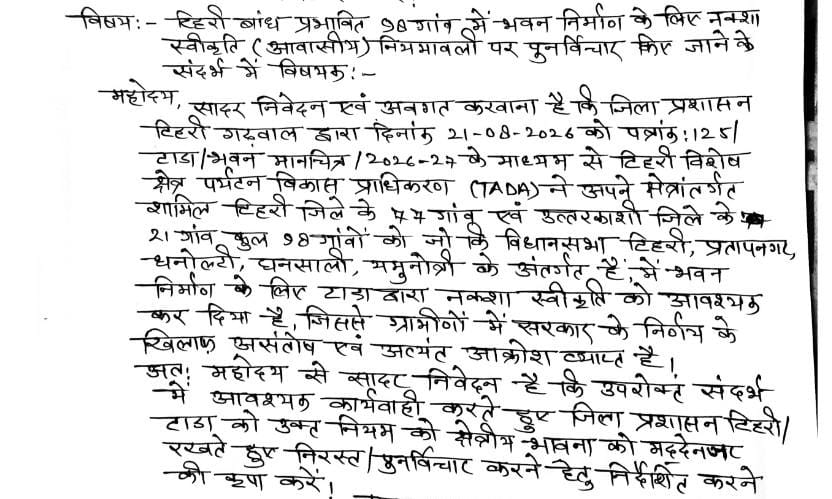 विषय:- टिहरी बांध प्रभावित 98 गांव में भवन निर्माण के लिए नक्शा
स्वीकृति (आवासीय) नियमावली पर पुनर्विचार किए जाने के
संदर्भ में विषयक:-
महोदय, सादर निवेदन एवं अवगत करवाना है कि जिला प्रशासन
टिहरी गढ़वाल द्वारा दिनांक 21-08-2026 को पत्रांक:125/
टाडा/भवन मानचित्र/2026-27 के माध्यम से टिहरी विशेष
क्षेत्र पर्यटन विकास प्राधिकरण (TADA) ने अपने क्षेत्रांतर्गत
शामिल टिहरी जिले के 77 गांव एवं उत्तरकाशी जिले के
21 गांव कुल 98 गांवों को जो कि विधानसभा टिहरी, प्रतापनगर,
धनोल्टी, घनसाली, यमुनोत्री के अंतर्गत है, में भवन
निर्माण के लिए टाडा द्वारा नक्शा स्वीकृति को आवश्यक
कर दिया है, जिससे ग्रामीणों में सरकार के निर्णय के
खिलाफ असंतोष एवं अत्यंत आक्रोश व्याप्त है।
अत: महोदय से सादर निवेदन है कि उपरोक्त संदर्भ
में आवश्यक कार्यवाही करते हुए जिला प्रशासन टिहरी/
टाडा को उक्त नियम को क्षेत्रीय भावना को मद्देनजर
रखते हुए निरस्त/पुनर्विचार करने हेतु निर्देशित करने
की कृपा करें।